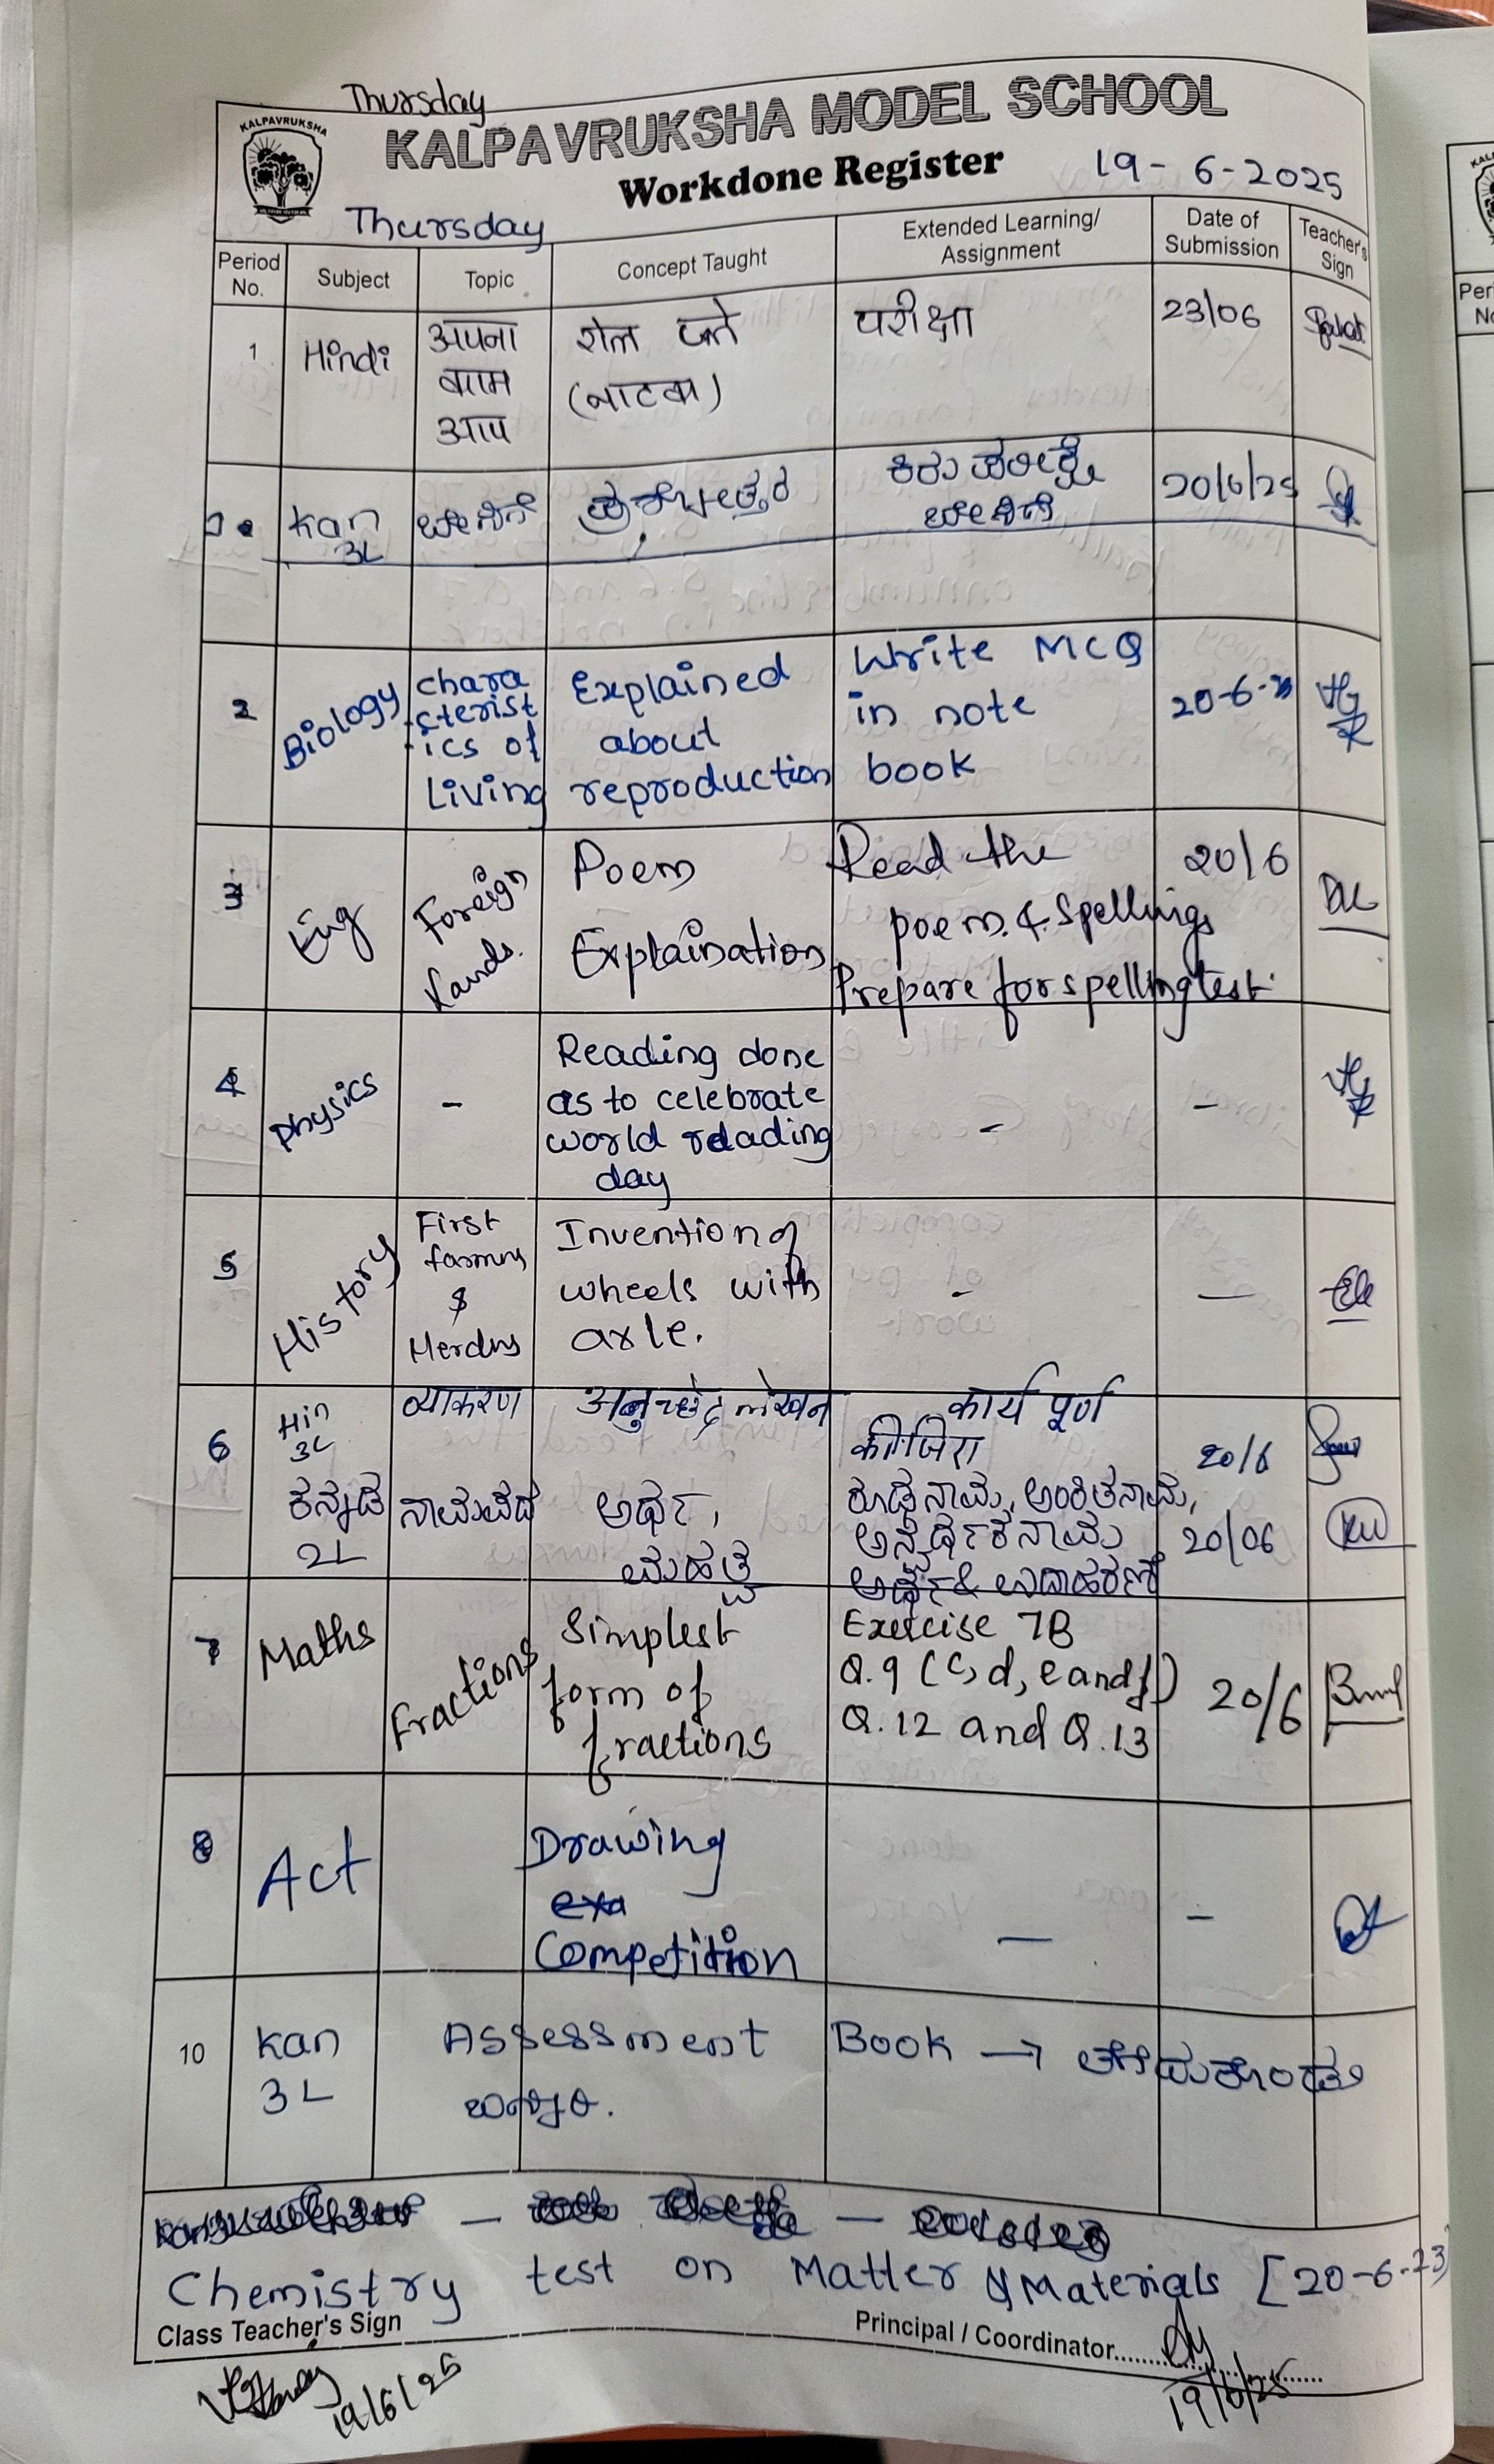 Thursday
KALPAVRUKSHA
KALPAVRUKSHA MODEL SCHOOL
Workdone Register
19-6-2025
Thursday
Period No.
Subject
Topic
Concept Taught
Extended Learning/ Assignment
Date of Submission
Teacher's Sign
1
Hindi
अपना
काम
आप
रोल प्ले
(नाटक)
परीक्षा
23/06
Kan
3L
ಪ್ರಶ್ನೋತ್ತರ
ಕಿರು ಪರೀಕ್ಷೆ
20/6/25
2
Biology
chara
-cterist
-ics of
Living
Explained
about
reproduction
Write MCQ
in note
book
20-6-
3
Eng
Foreign
Lands.
Poem
Explaination
Read the
poem. & Spellings
Prepare for spelling test.
20/6
4
Physics
-
Reading done
as to celebrate
world reading
day
-
-
5
History
First
farmers
&
Herders
Invention of
wheels with
axle.
-
—
6
Hin
3L
व्याकरण
अनुच्छेद लेखन
कार्य पूर्ण
कीजिए
20/6
ಕನ್ನಡ
2L
ನಾಮಪದ
ಅರ್ಥ,
ಮಹತ್ವ
ರೂಢನಾಮ, ಅಂಕಿತನಾಮ,
ಅನ್ವರ್ಥಕನಾಮ
ಅರ್ಥ & ಉದಾಹರಣೆ
20/06
7
Maths
Fractions
Simplest
form of
fractions
Exercise 7B
Q.9 (c, d, e and f)
Q.12 and Q.13
20/6
8
Act
Drawing
exa
Competition
—
-
10
Kan
3L
Assessment
Book →
Chemistry test on Matter & Materials [20-6-
Class Teacher's Sign
Principal / Coordinator
19/6/25
19/6/25